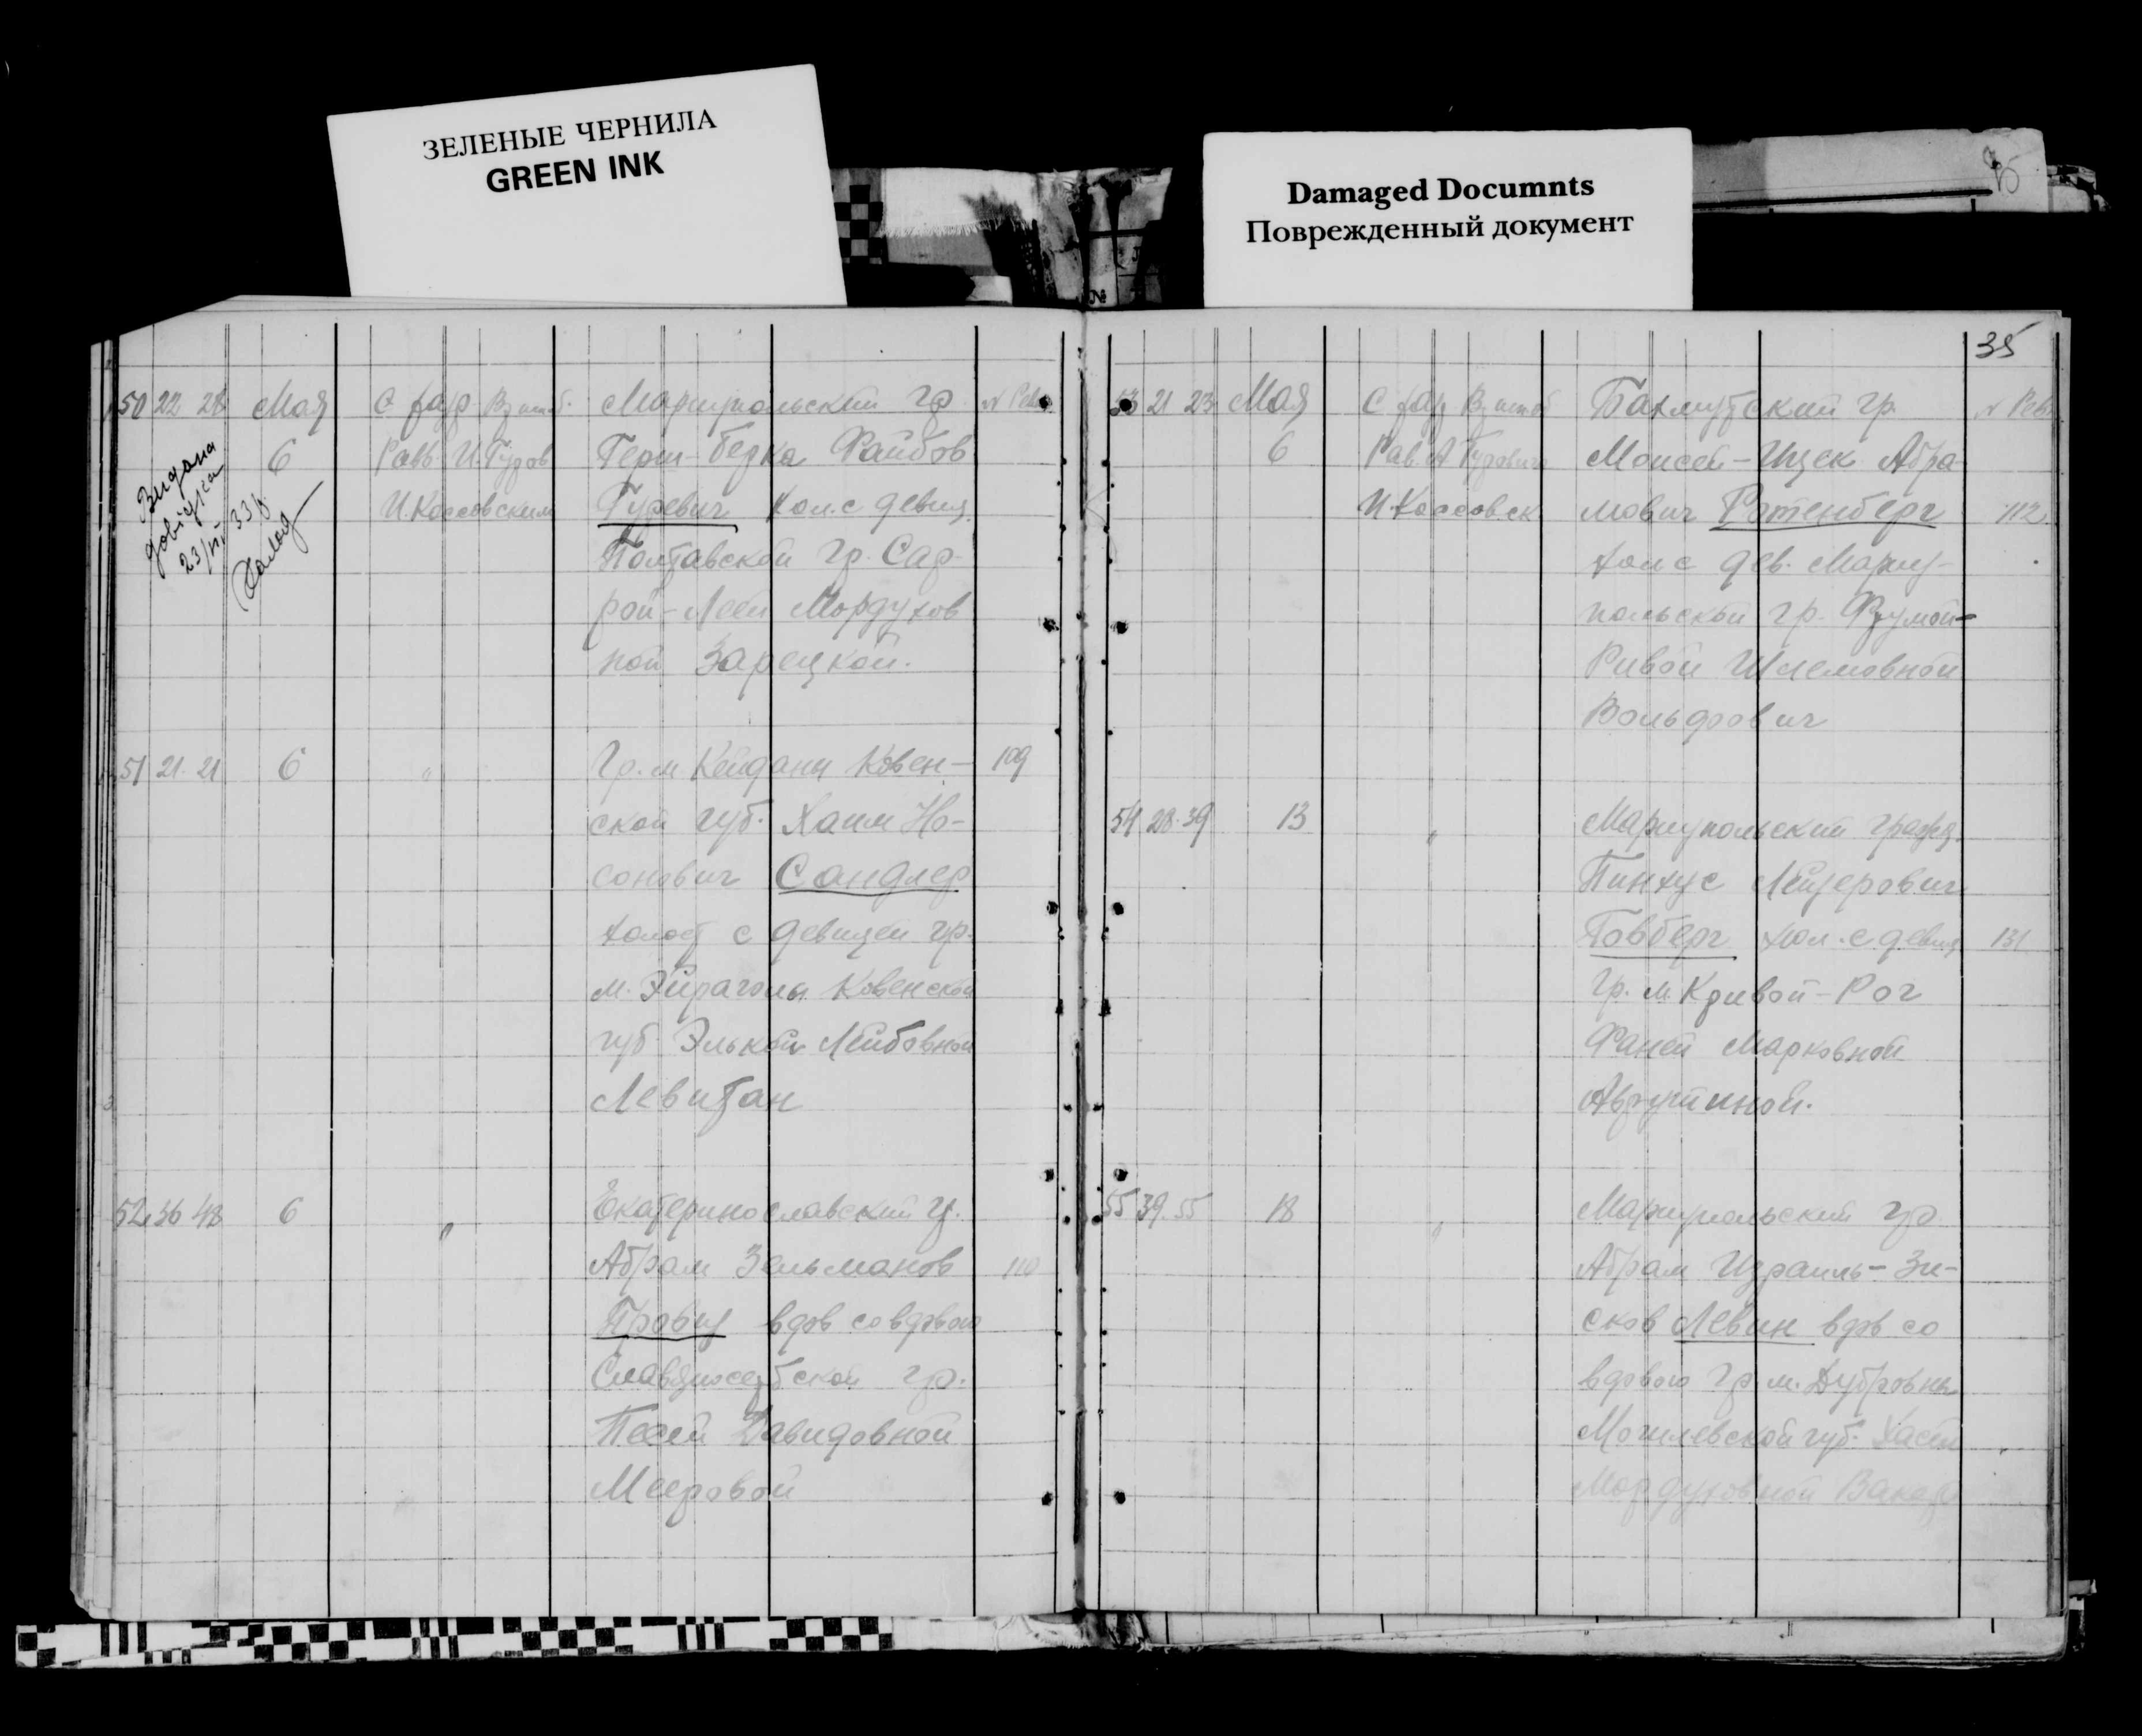 ЗЕЛЕНЫЕ ЧЕРНИЛА
GREEN INK
Damaged Documnts
Поврежденный документ
№
35
50 22 28 Мая
6
Видана
довідка
23/VII 33 р.
Мариупольский гр.
Герш-Берка Файбов
Гуревич хол. с девиц.
Полтавской гр. Сар-
рой-Леей Мордухов
ной Зарецкой.
И. Коссовским
51 21 21 6 "
Гр. м Кейданы Ковен- 109
ской губ. Хаим Но-
сонович Сандлер
холост с девицей гр.
м. Эйрагола Ковенской
губ Элькой Лейбовной
Левитан
52 36 48 6 "
Екатеринославский гр.
Абрам Зельманов 110
вдов со вдовою
Славяносербской гр.
Песей Давидовной
Мееровой
53 21 23 Мая
6
И. Коссовск
Бахмутский гр.
Моисей-Ицек Абра-
мович Ротенберг 112
хол с дев. Мариу-
польской гр. Фрумой-
Ривой Шлемовной
Вольфович
54 28 39 13 "
Мариупольский гражд.
Пинхус Лейзерович
Товберг хол. с девиц 131
Гр. м. Кривой-Рог
Фаней Марковной
Аврутиной.
55 39 55 18 "
Мариупольский гр
Абрам Израиль-Зи-
сков Левин вдов со
вдовою гр. м. Дубровны
Могилевской губ. Хасей
Мордуховной